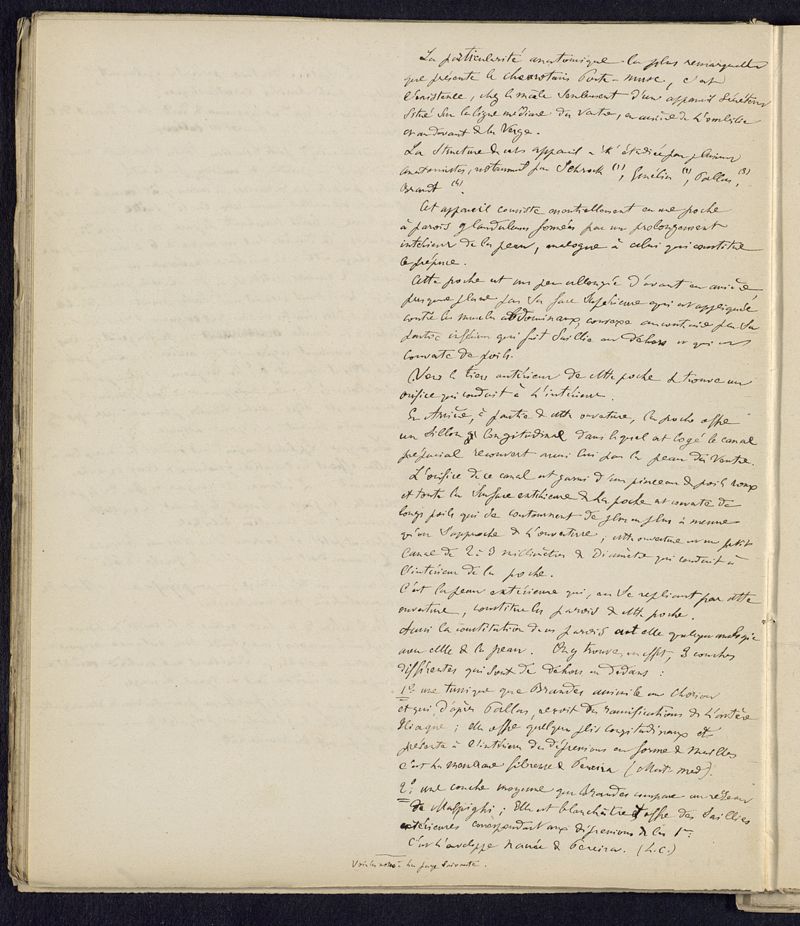 La particularité anatomique la plus remarquable
que présente le chevrotain Porte-musc, c'est
l'existence, chez le mâle seulement d'un appareil sécréteur
situé sur la ligne médiane du ventre, en arrière de l'ombilic
et en devant de la Verge.
La Structure de cet appareil a été étudiée par plusieurs
anatomistes, notamment par Schrock (1), Gmelin (2), Pallas, (3)
Brandt (4).
Cet appareil consiste essentiellement en une poche
à parois glandulaires formées par un prolongement
intérieur de la peau, analogue à celui qui constitue
le prépuce.
Cette poche est un peu allongée d'avant en arrière,
presque plane par sa face supérieure qui est appliquée
contre les muscles abdominaux, convexe au contraire par sa
partie inférieure qui fait saillie au dehors et qui est
couverte de poils.
Vers le tiers antérieur de cette poche se trouve un
orifice qui conduit à l'intérieur.
En Arrière, à partir de cette ouverture, la poche offre
un sillon longitudinal dans lequel est logé le canal
préputial recouvert aussi lui par la peau du Ventre.
L'orifice de ce canal est garni d'un pinceau de poils roux
et toute la surface extérieure de la poche est couverte de
longs poils qui se contournent de plus en plus à mesure
qu'on s'approche de l'ouverture; cette ouverture est un petit
canal de 2 à 3 millimètres de Diamètre qui conduit à
l'intérieur de la poche.
C'est la peau extérieure qui, en se repliant par cette
ouverture, constitue les parois de cette poche.
Aussi la constitution de ces parois a-t-elle quelque analogie
avec celle de la peau. On y trouve, en effet, 3 couches
différentes qui sont de dehors en dedans:
1º une tunique que Brandes assimile au Chorion
et qui d'après Pallas, reçoit des ramifications de l'artère
Iliaque; elle offre quelques plis longitudinaux et
présente à l'intérieur des dépressions en forme de mailles
c'est la membrane fibreuse de Pereira (Mat. med).
2º une couche moyenne que Brandes compare au réseau
de Malpighi; Elle est blanchâtre et offre des saillies
extérieures correspondant aux dépressions de la 1re
C'est l'enveloppe nacrée de Pereira. (L.C.)
Voir les notes à la page suivante.